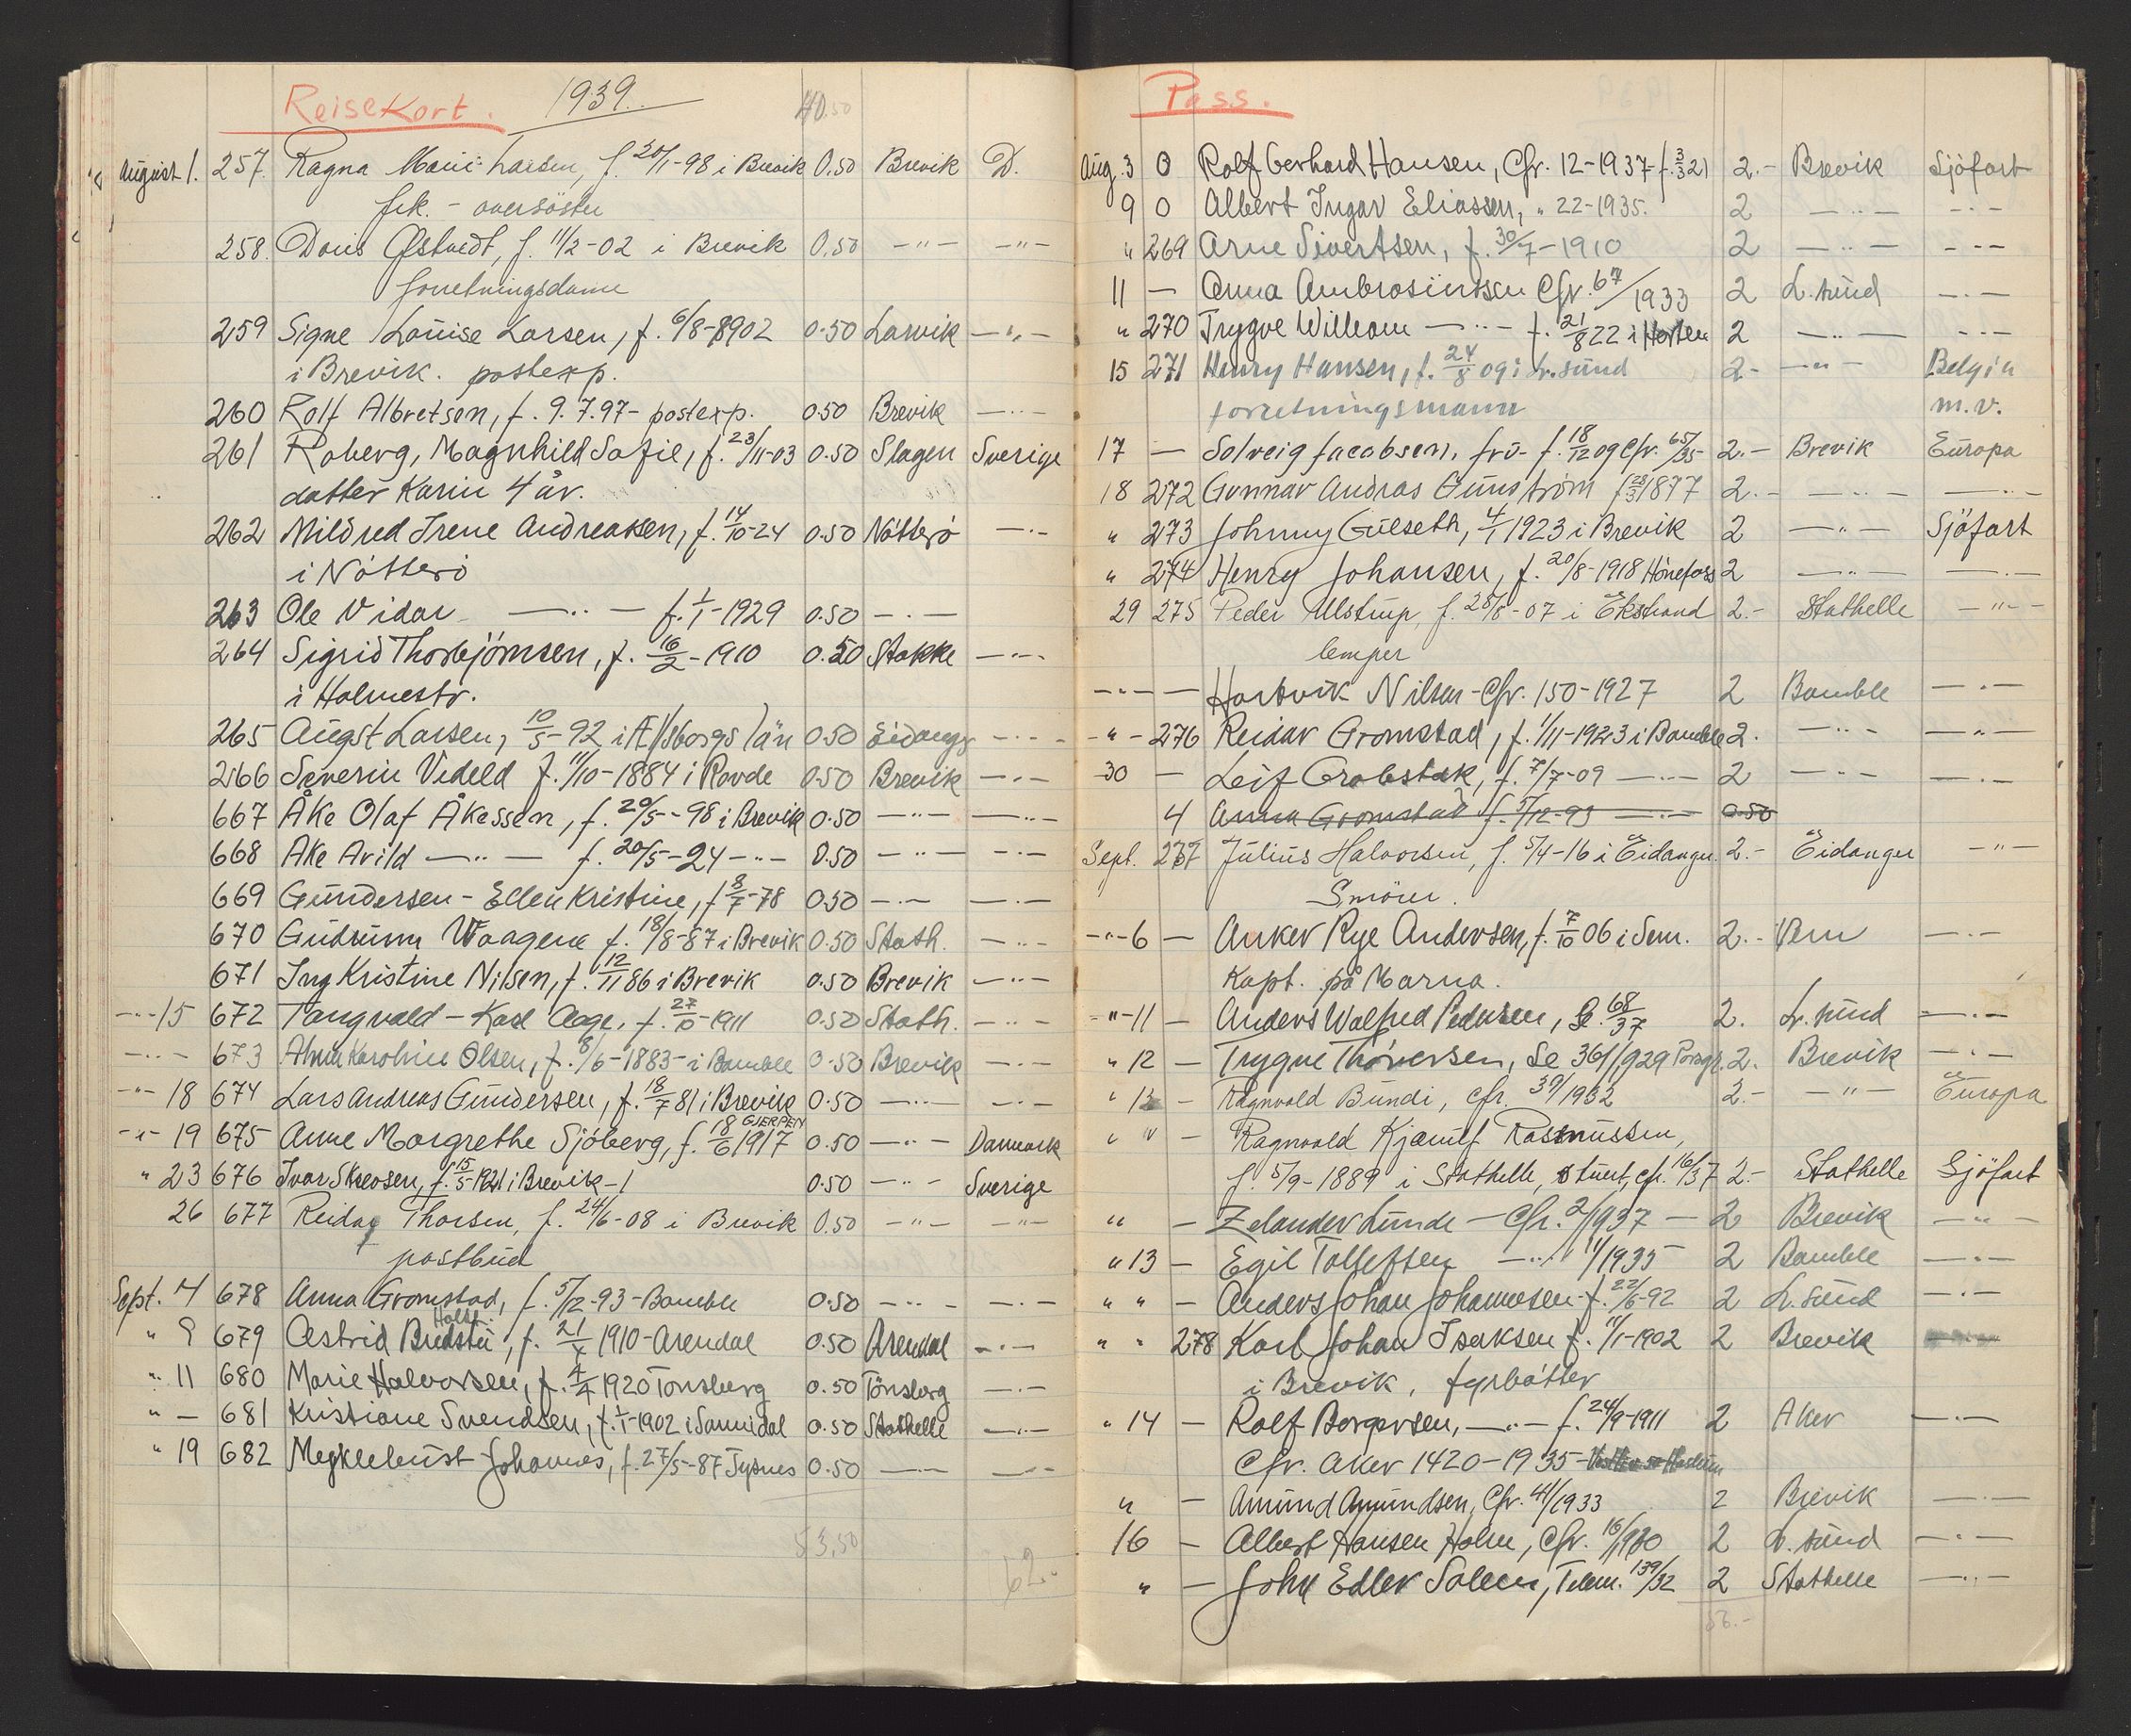 Reisekort. 1939. 40.50
August 1. 257. Ragna Marie Larsen, f. 30/1-98 i Brevik 0.50 Brevik D.
frk. - oversöster
258. Doris Østvedt, f. 11/2-02 i Brevik 0.50 -"- -"-
forretningsdame
259 Signe Louise Larsen, f. 6/8-8902 0.50 Larvik -"-
i Brevik. postexp.
260 Rolf Albretsen, f. 9.7.97- postexp. 0.50 Brevik -"-
261 Roberg, Magnhild Sofie, f. 23/11-03 0.50 Slagen Sverige
datter Karin 4 år.
262 Mildred Irene Andreassen, f. 14/10-24 0.50 Nötterö -"-
i Nötterö
263 Ole Vidar -"- f. 1/1-1929 0.50 -"-
264 Sigrid Thorbjörnsen, f. 16/2-1910 0.50 Stokke -"-
i Holmestr.
265 Augst Larsen, 10/5-92 i Ælfsborgs län 0.50 Eidangr -"-
266 Severin Videld f. 11/10-1884 i Rovde 0.50 Brevik -"-
667 Åke Olaf Åkessen, f. 20/5-98 i Brevik 0.50 -"- -"-
668 Åke Arild -"- f. 20/5-24 -"- 0.50 -"- -"-
669 Gundersen - Ellen Kristine, f 8/7-78 0.50 -"- -"-
670 Gudrunn Waagene f. 18/8-87 i Brevik 0.50 Stath. -"-
671 Ing Kristine Nilsen, f. 12/11 86 i Brevik 0.50 Brevik -"-
-"- 15 672 Tangvald - Karl Aage, f. 27/10-1911 0.50 Stath. -"-
-"- 673 Alma Karoline Olsen, f. 8/6-1883- i Bamble 0.50 Brevik -"-
-"- 18 674 Lars Andreas Gundersen, f. 18/7 81 i Brevik 0.50 -"- -"-
-"- 19 675 Anne Margrethe Sjöberg, f. 18/6 1917 GJERPEN 0.50 -"- Danmark
" 23 676 Ivar Skevsen, f. 15/5-1921 i Brevik -1 0.50 -"- Sverige
26 677 Reidar Thorsen, f. 24/6-08 i Brevik 0.50 -"- -"-
postbud
Sept. 4 678 Anna Gromstad, f. 5/12-93-Bamble 0.50 -"- -"-
Holst.
" 9 679 Astrid Bredstu, f. 21/x 1910-Arendal 0.50 Arendal -"-
" 11 680 Marie Halvorsen, f. 4/4 1920 Tönsberg 0.50 Tönsberg -"-
" - 681 Kristiane Svendsen, f. 1/1-1902 i Sannidal 0.50 Stathelle -"-
" 19 682 Megklebust Johannes, f. 27/5-87 Tysnes 0.50 -"- -"-
53,50
62.-
Pass.
Aug. 3 0 Rolf Gerhard Hansen, Cfr. 12-1937- f. 3/3 21 2.- Brevik Sjöfart
9 0 Albert Ingar Eliassen, " 22-1935. 2 -"- -"-
" 269 Arne Sivertsen, f. 30/7-1910 2 -"- -"-
11 - Anna Ambrosiussen Cfr. 67/1933 2 L.sund -"-
" 270 Trygve William -"- f. 21/8 22 i Horten 2 -"- -"-
15 271 Henry Hansen, f. 24/8 09 i Lr.sund 2- -"- Belgia
forretningsmann m.v.
17 - Solveig Jacobsen, fru- f. 18/12 09 Cfr. 65/35 2.- Brevik Europa
18 272 Gunnar Andras Gunström f 28/3 1877 2.- -"- -"-
" 273 Johnny Gulseth, 4/1 1923 i Brevik 2 -"- Sjöfart
" 274 Henry Johansen, f. 20/8-1918 Hönefoss 2 -"- -"-
29 275 Peder Ulstrup, f. 28/8-07 i Ekstrand 2.- Stathelle -"-
lemper
-"- - Hartvik Nilsen - Cfr. 150-1927 2 Bamble -"-
-"- 276 Reidar Gromstad, f. 1/11-1923 i Bamble 2. -"- -"-
30 - Leif Grobstok, f. 7/7-09 -"- 2 -"- -"-
4 Anna Gromstad f. 5/12-93 -"- 0.50
Sept. 277 Julius Halvorsen, f. 5/4-16 i Eidanger. 2.- Eidanger -"-
Smörer.
-"- 6 - Anker Rye Andersen, f. 7/10 06 i Sem. 2.- Sem -"-
Kapt. på Marna.
-"- 11 - Anders Walfred Pedersen, Se. 68/37 2. Lr.sund -"-
" 12 - Trygve Thoversen, Se 361/1929 Porsgr. 2. Brevik -"-
" 13 - Ragnvald Bundi, Cfr. 39/1932 2.- -"- Europa
" " - Ragnvald Kjanulf Rasmussen,
f. 5/9-1889 i Stathelle, stuert, cfr. 16/37 2.- Stathelle Sjöfart
" - Zelander Lunde - Cfr. 2/1937 - 2 Brevik -"-
" 13 - Egil Tollefsen -"- 11/1935 2 Bamble -"-
" " - Anders Johan Johannesen- f. 22/6-92 2 L.sund -"-
" " 278 Karl Johan Isaksen f. 11/1-1902 2 Brevik
i Brevik, fyrbötter
" 14 - Rolf Borgersen, -"- f. 24/9-1911 2 Aker -"-
Cfr. Aker 1420-1935-
" - Amund Amundsen, Cfr. 41/1933 2 Brevik -"-
16 - Albert Hansen Holm, Cfr. 16/1930 2 L.sund -"-
" - John Edler Solem, Telem. 139/32 2 Stathelle -"-
56.-